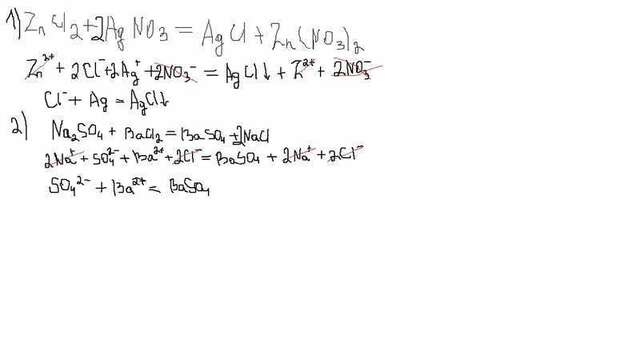 1) ZnCl2+2AgNO3 = AgCl+Zn(NO3)2
Zn2+ + 2Cl-+2Ag+ +2NO3- = AgCl↓ + Zn2+ + 2NO3-
Cl- + Ag = AgCl↓
2) Na2SO4 + BaCl2 = BaSO4 +2NaCl
2Na+ + SO42- + Ba2+ +2Cl- = BaSO4 + 2Na+ + 2Cl-
SO42- + Ba2+ = BaSO4